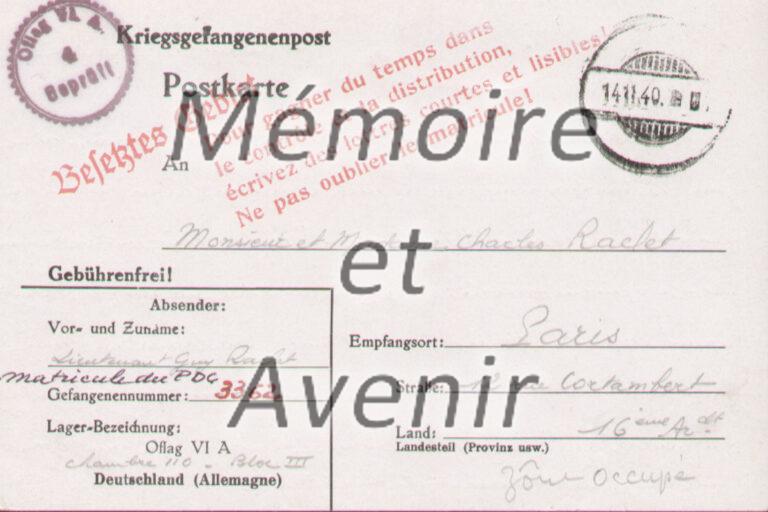 Oflag VI. A.
4
Geprüft
Kriegsgefangenenpost
Postkarte
14.11.40.
Besetztes Gebiet
Pour gagner du temps dans
le contrôle et la distribution,
écrivez des lettres courtes et lisibles!
Ne pas oublier le matricule!
An
Mémoire
et
Avenir
Monsieur et Charles Raclet
Gebührenfrei!
Absender:
Vor- und Zuname:
Lieutenant Guy Raclet
matricule du PDG
Gefangenennummer: 3352
Lager-Bezeichnung:
Oflag VI A
chambre 110 - Bloc III
Deutschland (Allemagne)
Empfangsort: Paris
Straße: 12 rue Cortambert
Land: 16ème Ardt
Landesteil (Provinz usw.)
zône occupée